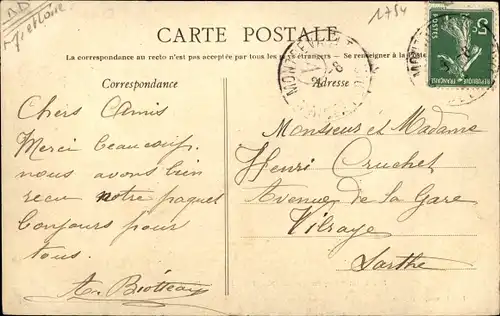 MD
1754
CARTE POSTALE
La correspondance au recto n'est pas acceptée par tous les pays étrangers. — Se renseigner à la poste
Correspondance
Adresse
5
POSTES
REPUBLIQUE FRANÇAISE
Chers Amis
Merci beaucoup.
nous avons bien
recu notre paquet
bonjours pour
tous.
Monsieur et Madame
Henri Cruchet
Avenue de la Gare
Vibraye
Sarthe